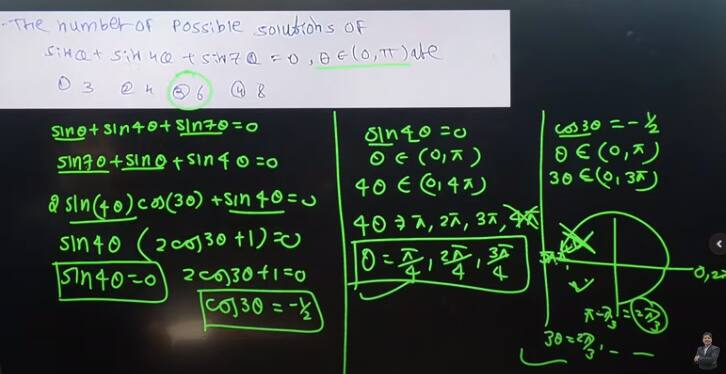 The number of possible solutions of
sinθ + sin4θ + sin7θ = 0, θ ∈ (0, π) are
① 3 ② 4 ③ 6 ④ 8
sinθ + sin4θ + sin7θ = 0
sin7θ + sinθ + sin4θ = 0
2 sin(4θ) cos(3θ) + sin4θ = 0
sin4θ (2cos3θ + 1) = 0
sin4θ = 0 2cos3θ + 1 = 0
cos3θ = -1/2
sin4θ = 0
θ ∈ (0, π)
4θ ∈ (0, 4π)
4θ ∋ π, 2π, 3π, 4π
θ = π/4, 2π/4, 3π/4
cos3θ = -1/2
θ ∈ (0, π)
3θ ∈ (0, 3π)
π - π/3 = 2π/3
3θ = 2π/3, - -